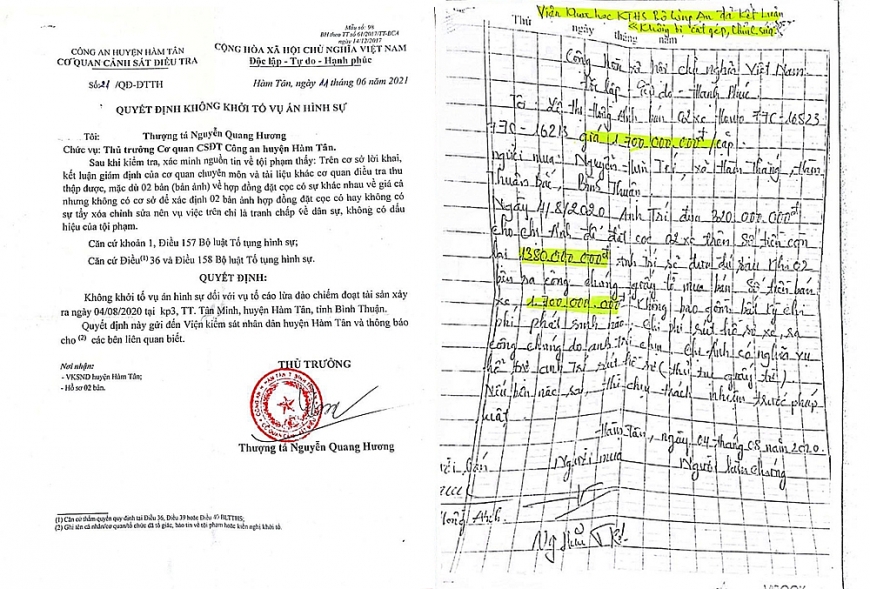 Mẫu số: 96
BH theo TT số 61/2017/TT-BCA
ngày 14/12/2017
CÔNG AN HUYỆN HÀM TÂN
CƠ QUAN CẢNH SÁT ĐIỀU TRA
CỘNG HÒA XÃ HỘI CHỦ NGHĨA VIỆT NAM
Độc lập - Tự do - Hạnh phúc
Số: 21 /QĐ-ĐTTH
Hàm Tân, ngày 11 tháng 06 năm 2021
QUYẾT ĐỊNH KHÔNG KHỞI TỐ VỤ ÁN HÌNH SỰ
Tôi: Thượng tá Nguyễn Quang Hương
Chức vụ: Thủ trưởng Cơ quan CSĐT Công an huyện Hàm Tân.
Sau khi kiểm tra, xác minh nguồn tin về tội phạm thấy: Trên cơ sở lời khai,
kết luận giám định của cơ quan chuyên môn và tài liệu khác cơ quan điều tra thu
thập được, mặc dù 02 bản (bản ảnh) về hợp đồng đặt cọc có sự khác nhau về giá cả
nhưng không có cơ sở để xác định 02 bản ảnh hợp đồng đặt cọc hay không có
sự tẩy xóa chỉnh sửa nên vụ việc trên chỉ là tranh chấp về dân sự, không có dấu
hiệu của tội phạm.
Căn cứ khoản 1, Điều 157 Bộ luật Tố tụng hình sự;
Căn cứ Điều(1) 36 và Điều 158 Bộ luật Tố tụng hình sự.
QUYẾT ĐỊNH:
Không khởi tố vụ án hình sự đối với vụ tố cáo lừa đảo chiếm đoạt tài sản xảy
ra ngày 04/08/2020 tại kp3, TT. Tân Minh, huyện Hàm Tân, tỉnh Bình Thuận.
Quyết định này gửi đến Viện kiểm sát nhân dân huyện Hàm Tân và thông báo
cho (2) các bên liên quan biết.
Nơi nhận:
- VKSND huyện Hàm Tân;
- Hồ sơ 02 bản.
THỦ TRƯỞNG
Thượng tá Nguyễn Quang Hương
(1) Căn cứ thẩm quyền quy định tại Điều 36, Điều 39 hoặc Điều 40 BLTTHS;
(2) Ghi tên cá nhân/cơ quan/tổ chức đã tố giác, báo tin về tội phạm hoặc kiến nghị khởi tố.
Viện Khoa học KTHS Bộ Công An đã kết luận
"Không bị cắt ghép, chỉnh sửa"
Thứ ngày tháng năm
Cộng hòa xã hội chủ nghĩa Việt Nam
Độc lập - Tự do - Hạnh Phúc
Tôi: Lê Thị Hồng Ánh bán 02 xe 77C-16823
77C-16213 giá 1.700.000.000đ/cặp
người mua Nguyễn Hữu Trí, xã Hàm Thắng, Hàm
Thuận Bắc, Bình Thuận
Ngày 4/8/2020 Anh Trí đưa 320.000.000đ
cho chị Ánh để đặt cọc 02 xe trên. Số tiền còn
lại 1380.000.000đ anh Trí sẽ đưa đủ sau khi 02
bên ra công chứng giấy tờ mua bán. Số tiền bán
xe 1.700.000.000đ không bao gồm bất kỳ chi
phí phát sinh nào, chi phí rút hồ sơ xe, ra
công chứng do anh Trí chịu, chị Ánh có nghĩa vụ
hỗ trợ anh Trí rút hồ sơ (thủ tục giấy tờ)
Nếu bên nào sai, thì chịu trách nhiệm trước pháp
luật
Hàm Tân, ngày 04 tháng 08 năm 2020
Người mua Người làm chứng
Hồng Ánh
Ng Hữu Trí